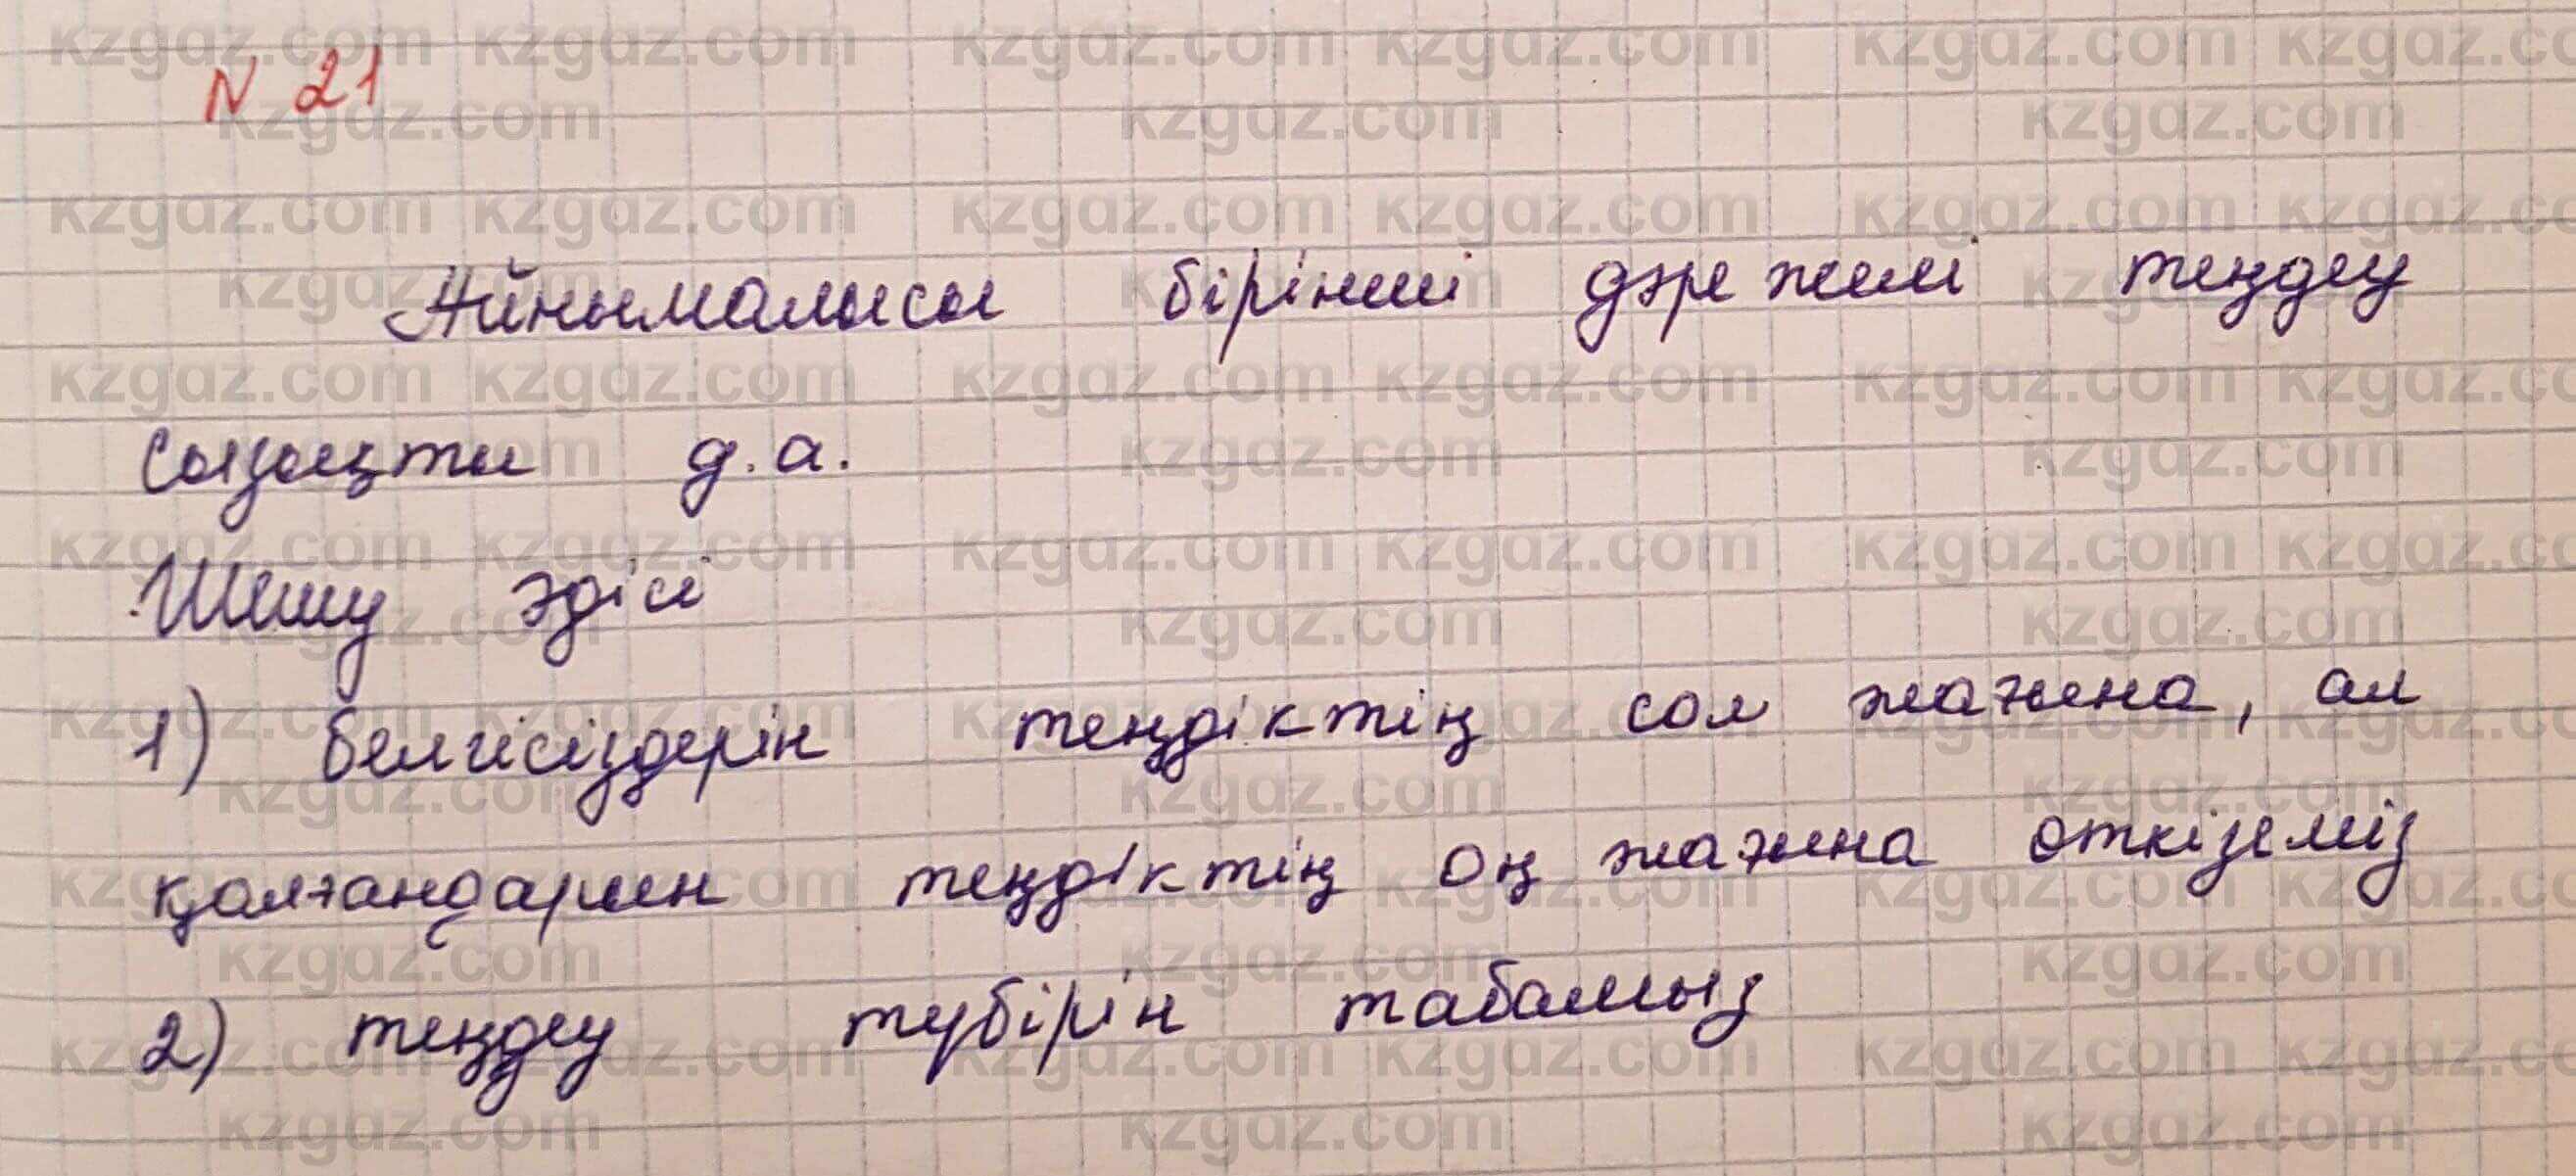 N 21
Айнымалысы бірінші дәрежелі теңдеу
сызықты д.а.
Шешу әдісі
1) белгісіздерін теңдіктің сол жағына, ал
қалғандарын теңдіктің оң жағына өткіземіз
2) теңдеу түбірін табамыз